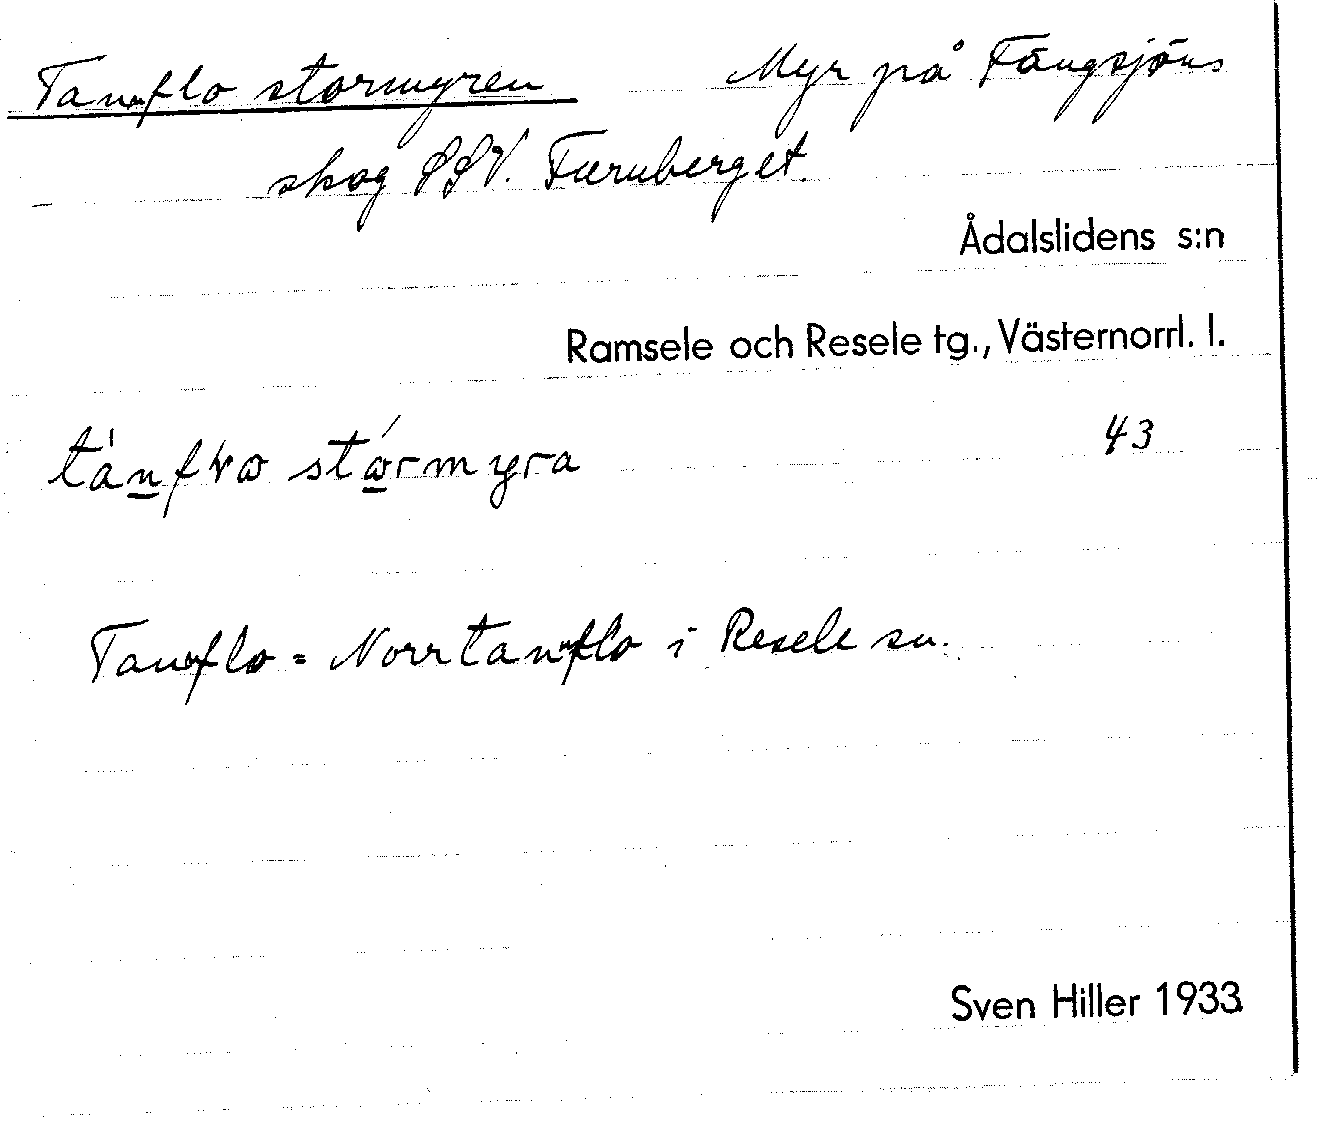 Tanflo stormyren Myr på Fängsjöns
skog SSV. Furuberget.
Ådalslidens s:n
Ramsele och Resele tg., Västernorrl. l.
43
stormyra
Tanflo = Norrtanflo i Resele sn.
Sven Hiller 1933